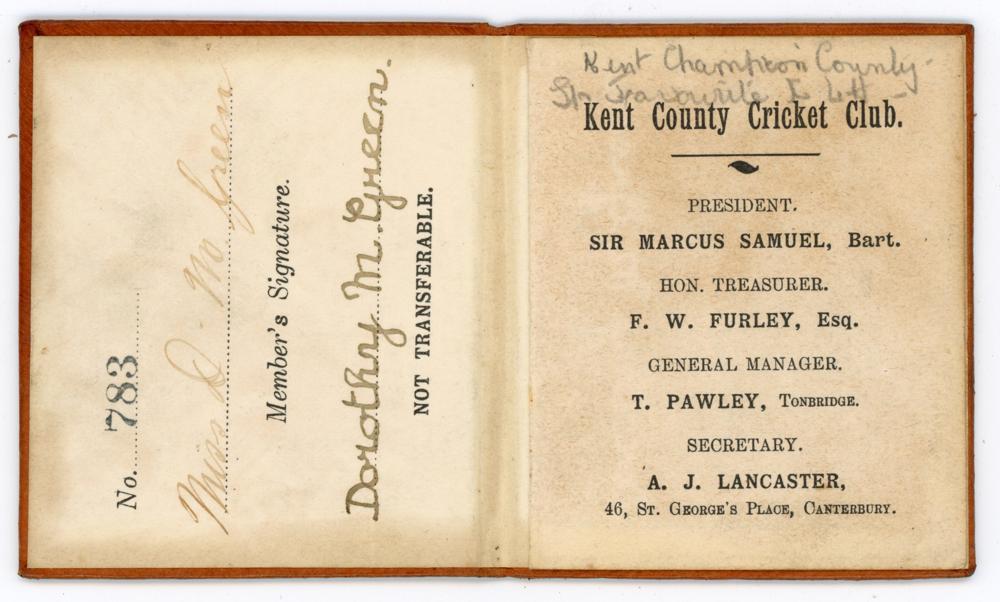 No. 783
Miss D. M Green
Member's Signature.
Dorothy M. Green.
NOT TRANSFERABLE.
Kent Champion County-
Kent County Cricket Club.
PRESIDENT.
SIR MARCUS SAMUEL, Bart.
HON. TREASURER.
F. W. FURLEY, Esq.
GENERAL MANAGER.
T. PAWLEY, TONBRIDGE.
SECRETARY.
A. J. LANCASTER,
46, ST. GEORGE'S PLACE, CANTERBURY.